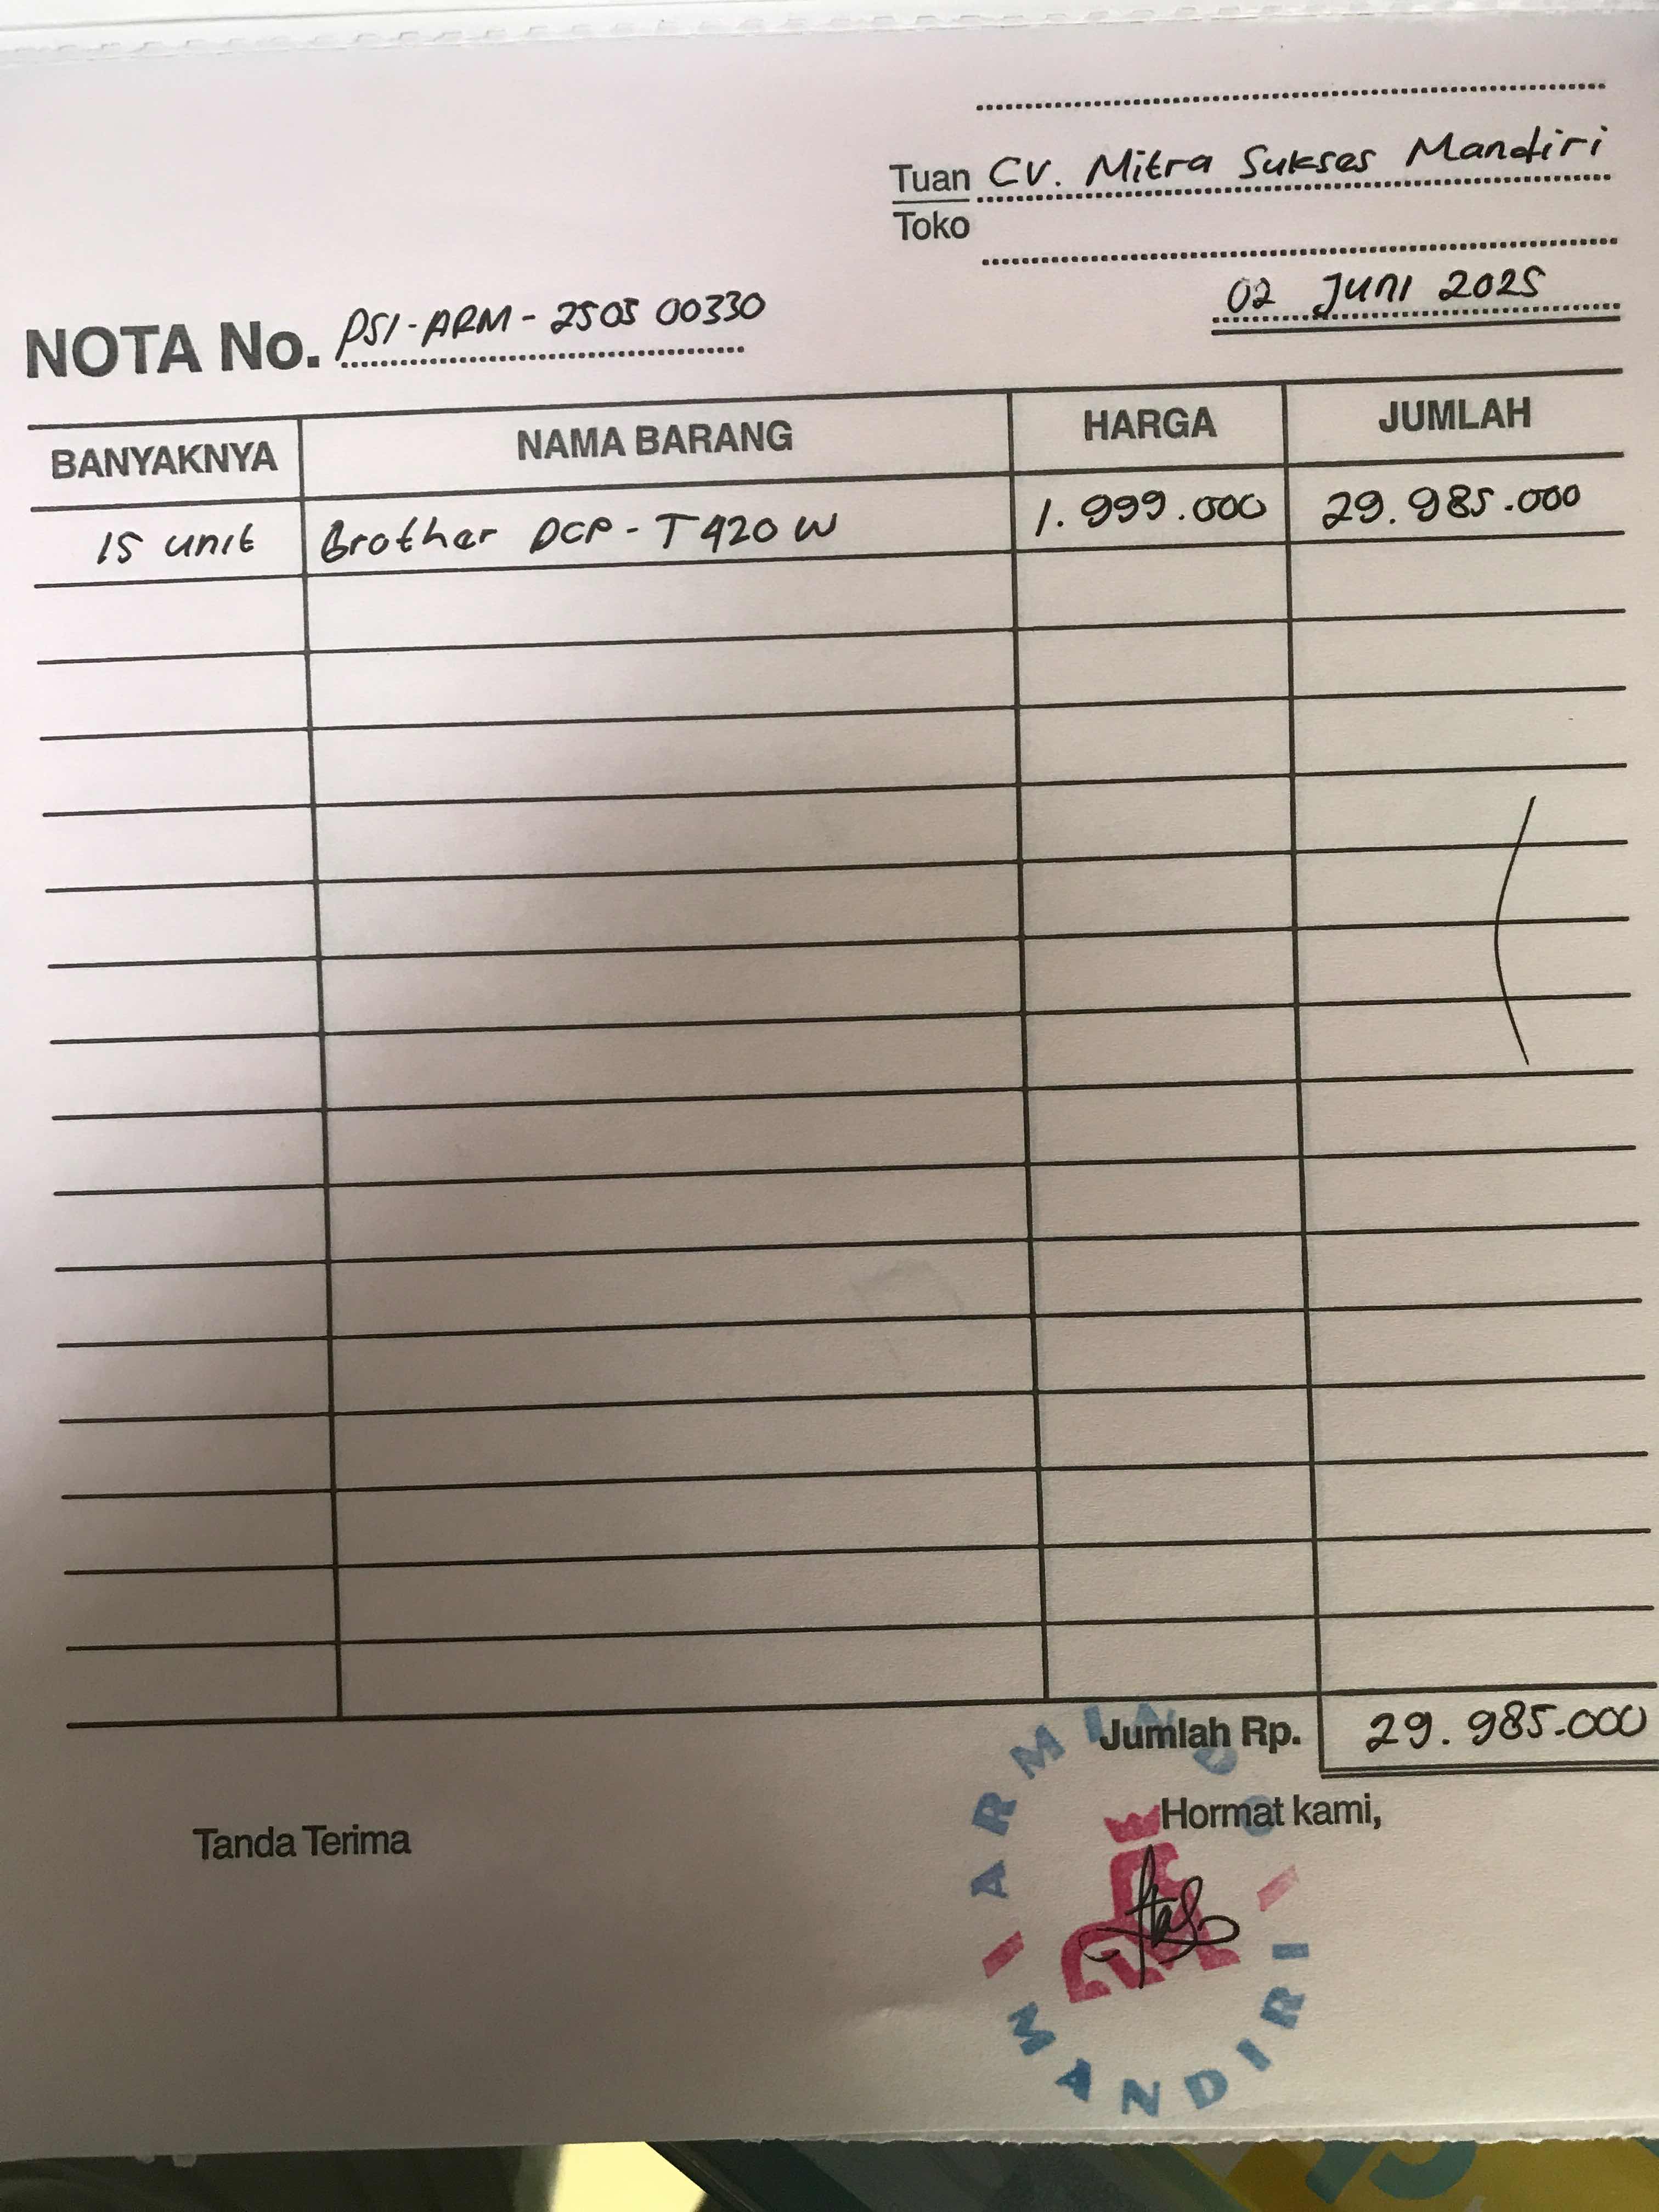 Tuan CV. Mitra Sukses Mandiri
Toko
02 Juni 2025
NOTA No. PSI-ARM-2505 00330
BANYAKNYA NAMA BARANG HARGA JUMLAH
15 unit Brother DCP-T420W 1.999.000 29.985.000
Jumlah Rp. 29.985.000
Tanda Terima
Hormat kami,
ARMINDO
MANDIRI